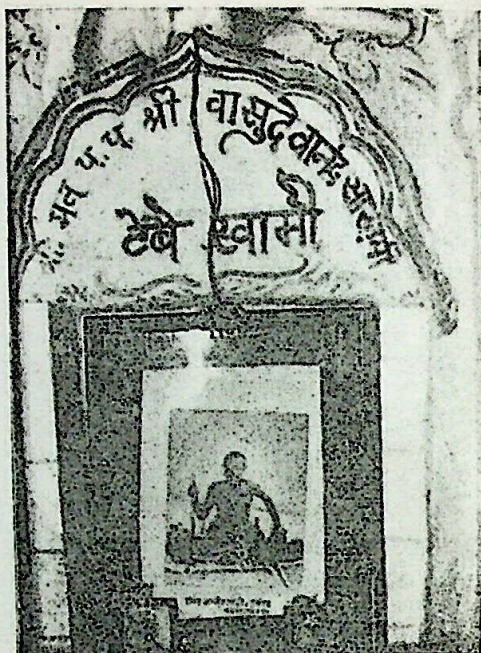 श्री. मत् प. प. श्री वासुदेवानंद सरस्वती
टेंबे स्वामी